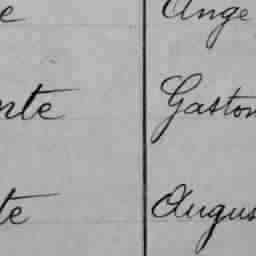 e Ange
nte Gaston
te Augus